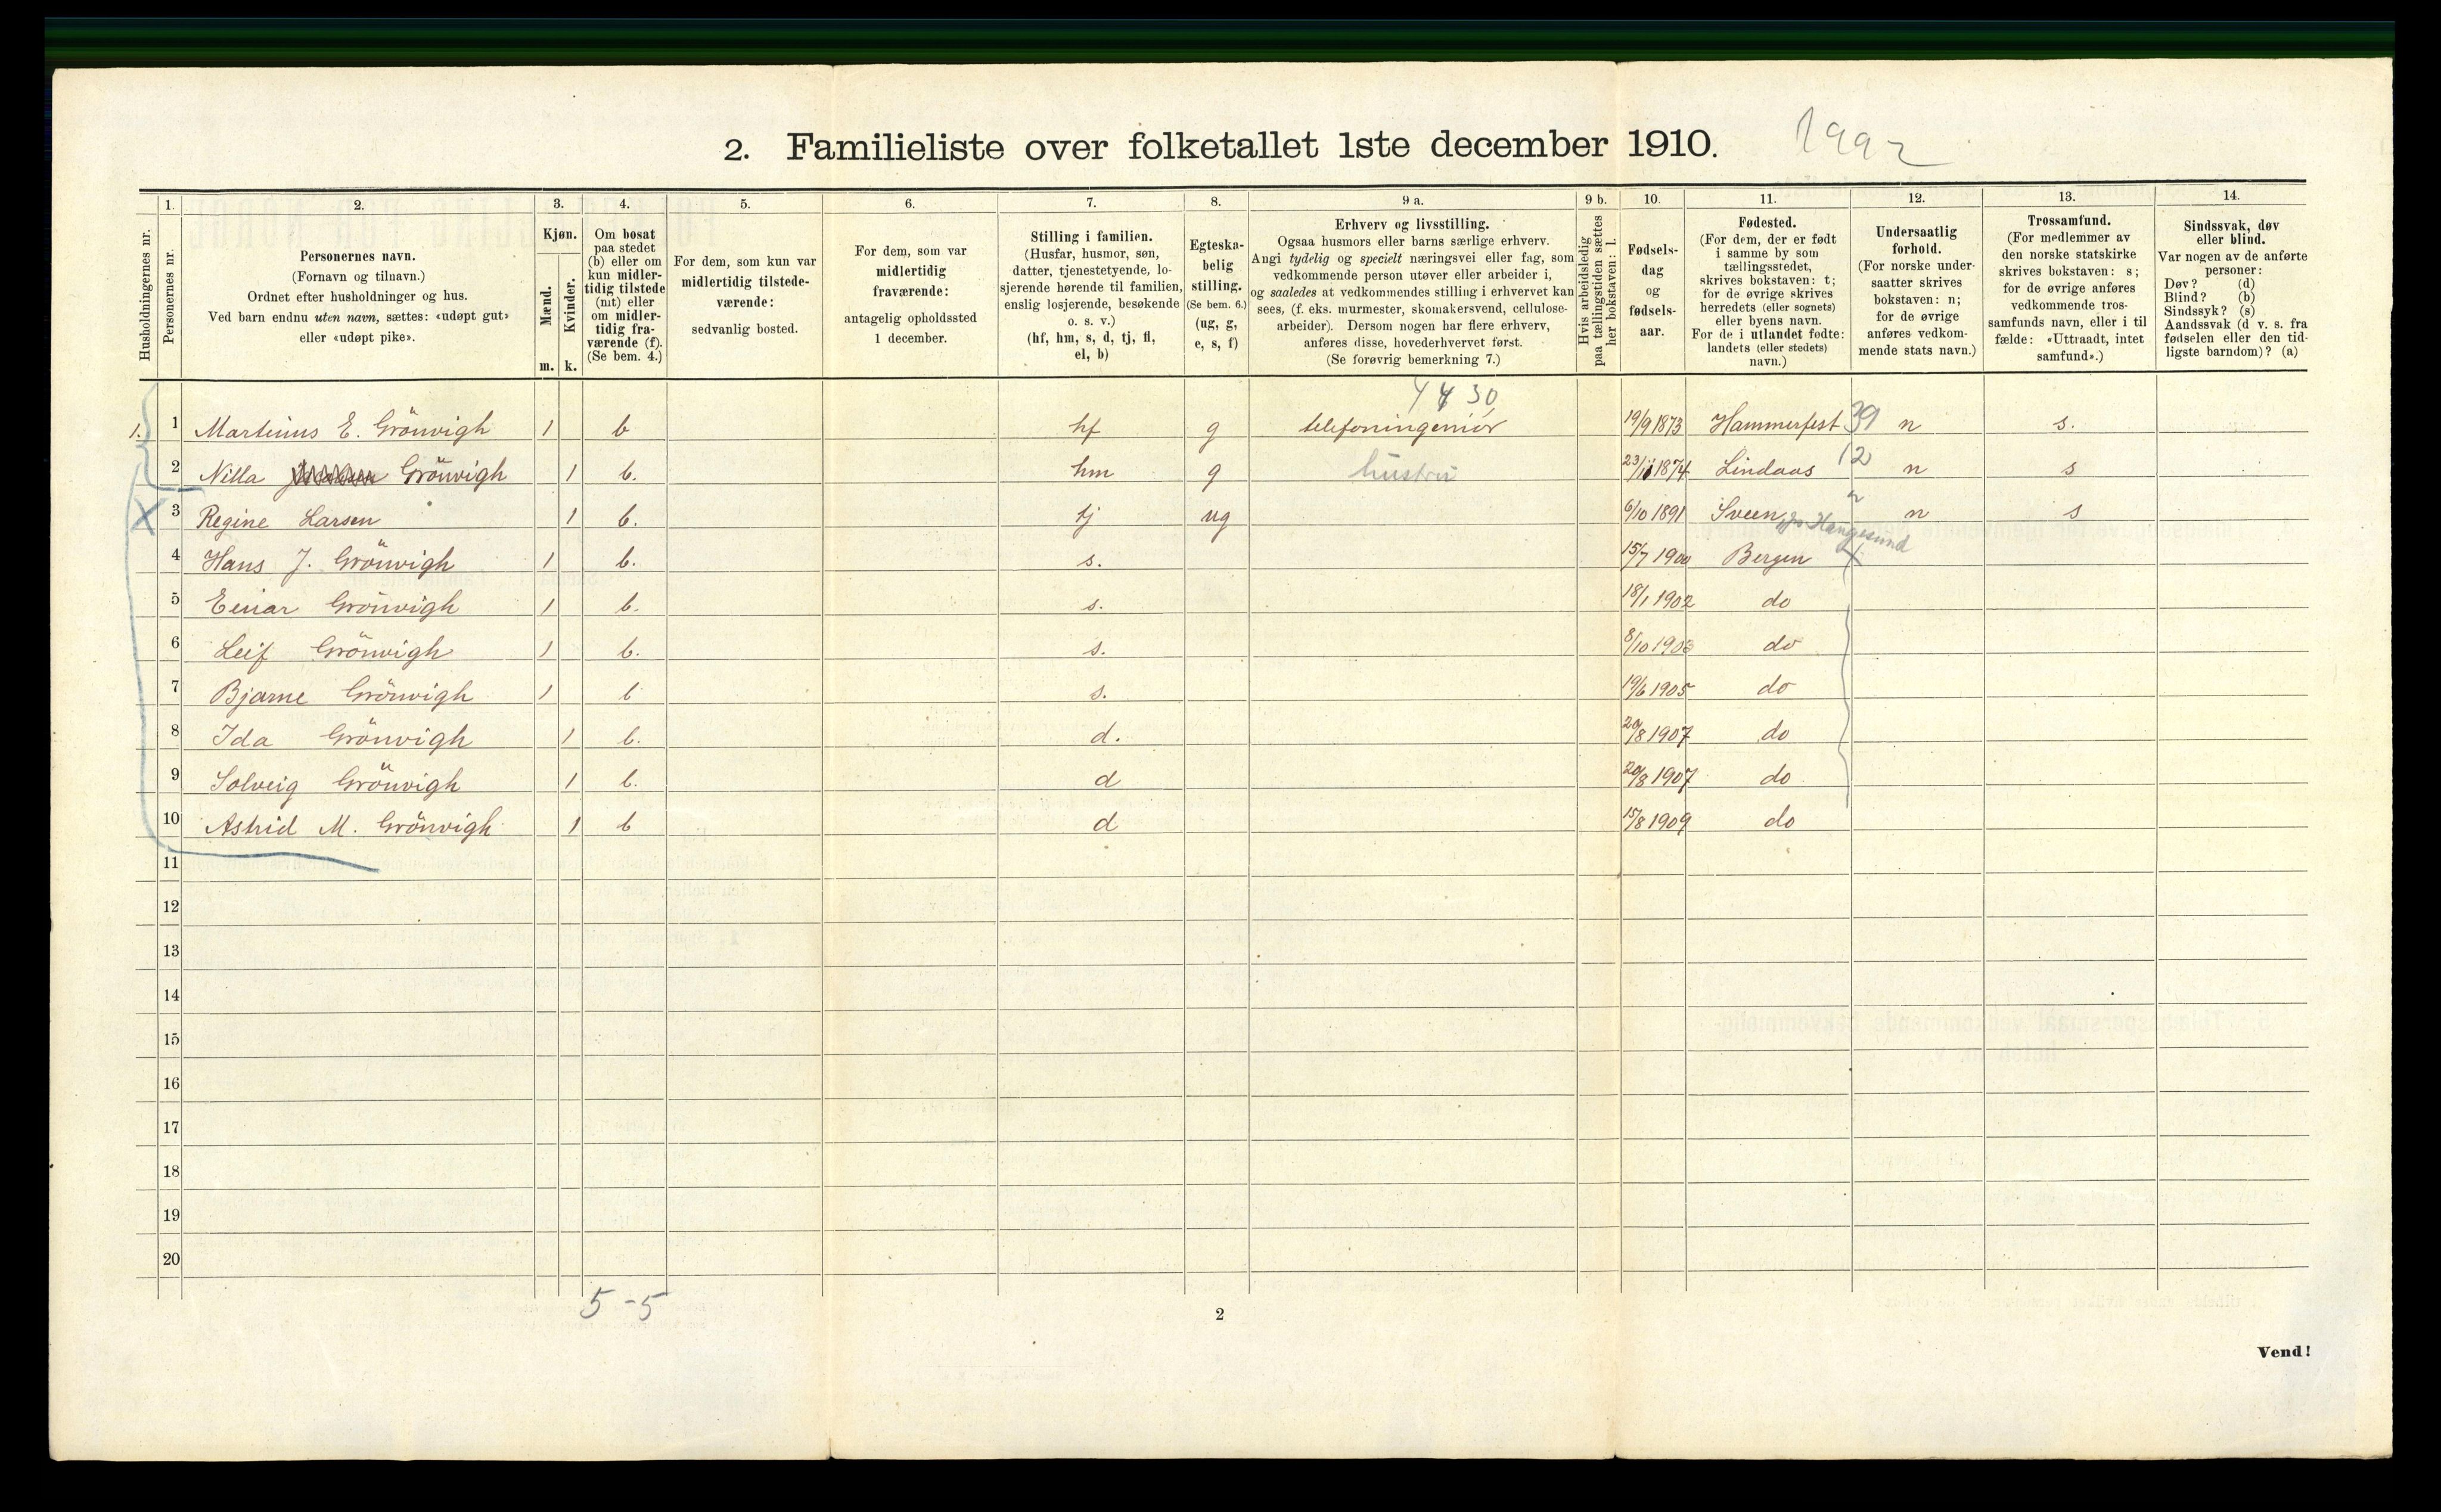 2. Familieliste over folketallet 1ste december 1910.
1992
Husholdningernes nr.
1.
Personernes nr.
2.
Personernes navn.
(Fornavn og tilnavn.)
Ordnet efter husholdninger og hus.
Ved barn endnu uten navn, sættes: «udøpt gut»
eller «udøpt pike».
3.
Kjøn.
Mænd.
Kvinder.
m. k.
4.
Om bosat
paa stedet
(b) eller om
kun midler-
tidig tilstede
(mt) eller
om midler-
tidig fra-
værende (f).
(Se bem. 4.)
5.
For dem, som kun var
midlertidig tilstede-
værende:
sedvanlig bosted.
6.
For dem, som var
midlertidig
fraværende:
antagelig opholdssted
1 december.
7.
Stilling i familien.
(Husfar, husmor, søn,
datter, tjenestetyende, lo-
sjerende hørende til familien,
enslig losjerende, besøkende
o. s. v.)
(hf, hm, s, d, tj, fl,
el, b)
8.
Egteska-
belig
stilling.
(Se bem. 6.)
(ug, g,
e, s, f)
9 a.
Erhverv og livsstilling.
Ogsaa husmors eller barns særlige erhverv.
Angi tydelig og specielt næringsvei eller fag, som
vedkommende person utøver eller arbeider i,
og saaledes at vedkommendes stilling i erhvervet kan
sees, (f. eks. murmester, skomakersvend, cellulose-
arbeider). Dersom nogen har flere erhverv,
anføres disse, hovederhvervet først.
(Se forøvrig bemerkning 7.)
9 b.
Hvis arbeidsledig
paa tællingstiden sættes
her bokstaven: l.
10.
Fødsels-
dag
og
fødsels-
aar.
11.
Fødested.
(For dem, der er født
i samme by som
tællingsstedet,
skrives bokstaven: t;
for de øvrige skrives
herredets (eller sognets)
eller byens navn.
For de i utlandet fødte:
landets (eller stedets)
navn.)
12.
Undersaatlig
forhold.
(For norske under-
saatter skrives
bokstaven: n;
for de øvrige
anføres vedkom-
mende stats navn.)
13.
Trossamfund.
(For medlemmer av
den norske statskirke
skrives bokstaven: s;
for de øvrige anføres
vedkommende tros-
samfunds navn, eller i til
fælde: «Uttraadt, intet
samfund».)
14.
Sindssvak, døv
eller blind.
Var nogen av de anførte
personer:
Døv? (d)
Blind? (b)
Sindssyk? (s)
Aandssvak (d v. s. fra
fødselen eller den tid-
ligste barndom)? (a)
1. 1 Martinius E. Grönvigh 1 b hf g telefoningeniör 19/9 1873 Hammerfest 39 n s.
2 Nilla Grönvigh 1 b. hm g hustru 23/11 1874 Lindaas 12 n s
X 3 Regine Larsen 1 b. tj ug 6/10 1891 Sveen pr Haugesund n s
4 Hans J. Grönvigh 1 b. s. 15/7 1900 Bergen
5 Einar Grönvigh 1 b. s. 18/1 1902 do
6 Leif Grönvigh 1 b. s. 8/10 1903 do
7 Bjarne Grönvigh 1 b s. 19/6 1905 do
8 Ida Grönvigh 1 b. d. 29/8 1907 do
9 Solveig Grönvigh 1 b. d 29/8 1907 do
10 Astrid M. Grönvigh 1 b d 15/8 1909 do
11
12
13
14
15
16
17
18
19
20
5-5
2
Vend!